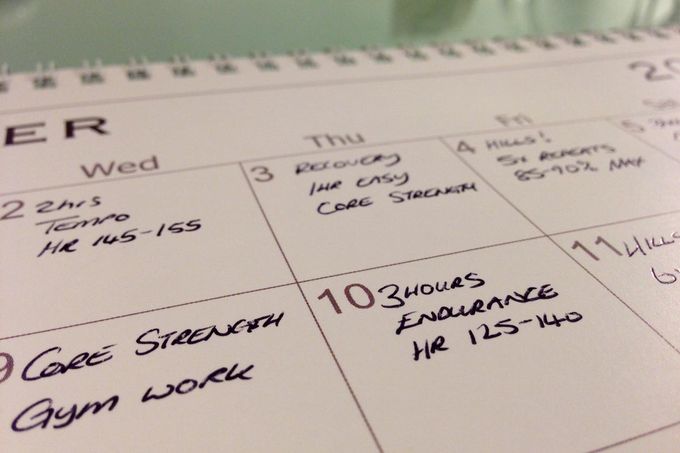 20
ER
Wed
Thu
Fri
Sa
2 2hrs
Tempo
HR 145-155
3 RECOVERY
1HR EASY
CORE STRENGTH
4 HILLS!
5x REPEATS
85-90% MAX
5
9 CORE STRENGTH
Gym WORK
10 3HOURS
ENDURANCE
HR 125-140
11 HILLS
6